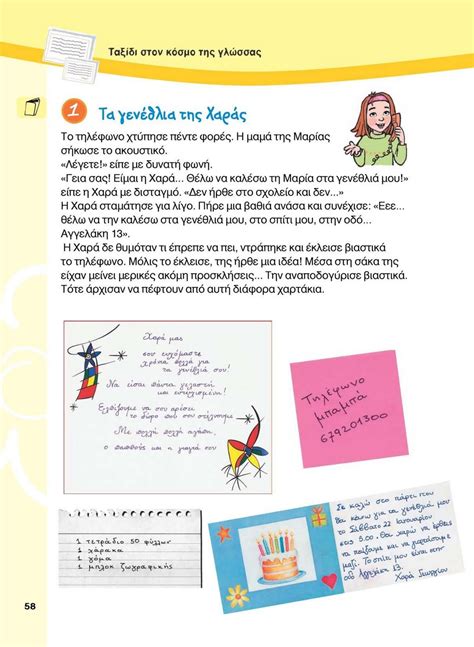 Ταξίδι στον κόσμο της γλώσσας
1 Τα γενέθλια της Χαράς
Το τηλέφωνο χτύπησε πέντε φορές. Η μαμά της Μαρίας
σήκωσε το ακουστικό.
«Λέγετε!» είπε με δυνατή φωνή.
«Γεια σας! Είμαι η Χαρά... Θέλω να καλέσω τη Μαρία στα γενέθλιά μου!»
είπε η Χαρά με δισταγμό. «Δεν ήρθε στο σχολείο και δεν...»
Η Χαρά σταμάτησε για λίγο. Πήρε μια βαθιά ανάσα και συνέχισε: «Εεε...
θέλω να την καλέσω στα γενέθλιά μου, στο σπίτι μου, στην οδό...
Αγγελάκη 13».
Η Χαρά δε θυμόταν τι έπρεπε να πει, ντράπηκε και έκλεισε βιαστικά
το τηλέφωνο. Μόλις το έκλεισε, της ήρθε μια ιδέα! Μέσα στη σάκα της
είχαν μείνει μερικές ακόμη προσκλήσεις... Την αναποδογύρισε βιαστικά.
Τότε άρχισαν να πέφτουν από αυτή διάφορα χαρτάκια.
Χαρά μας
σου ευχόμαστε
χρόνια πολλά για
τα γενέθλιά σου!
Να είσαι πάντα γελαστή
και ευτυχισμένη!
Ελπίζουμε να σου αρέσει
το δώρο που σου στέλνουμε.
Με πολλή πολλή αγάπη,
ο παππούς και η γιαγιά σου
Τηλέφωνο
μπαμπά
679201300
1 τετράδιο 50 φύλλων
1 χάρακα
1 γόμα
1 μπλοκ ζωγραφικής
Σε καλώ στο πάρτι που
θα κάνω για τα γενέθλιά μου
το Σάββατο 22 Ιανουαρίου
στις 5.00. Θα χαρώ να έρθεις
να παίξουμε και να χορέψουμε
μαζί. Το σπίτι μου είναι στην
οδό Αγγελάκη 13.
Χαρά Γεωργίου
58